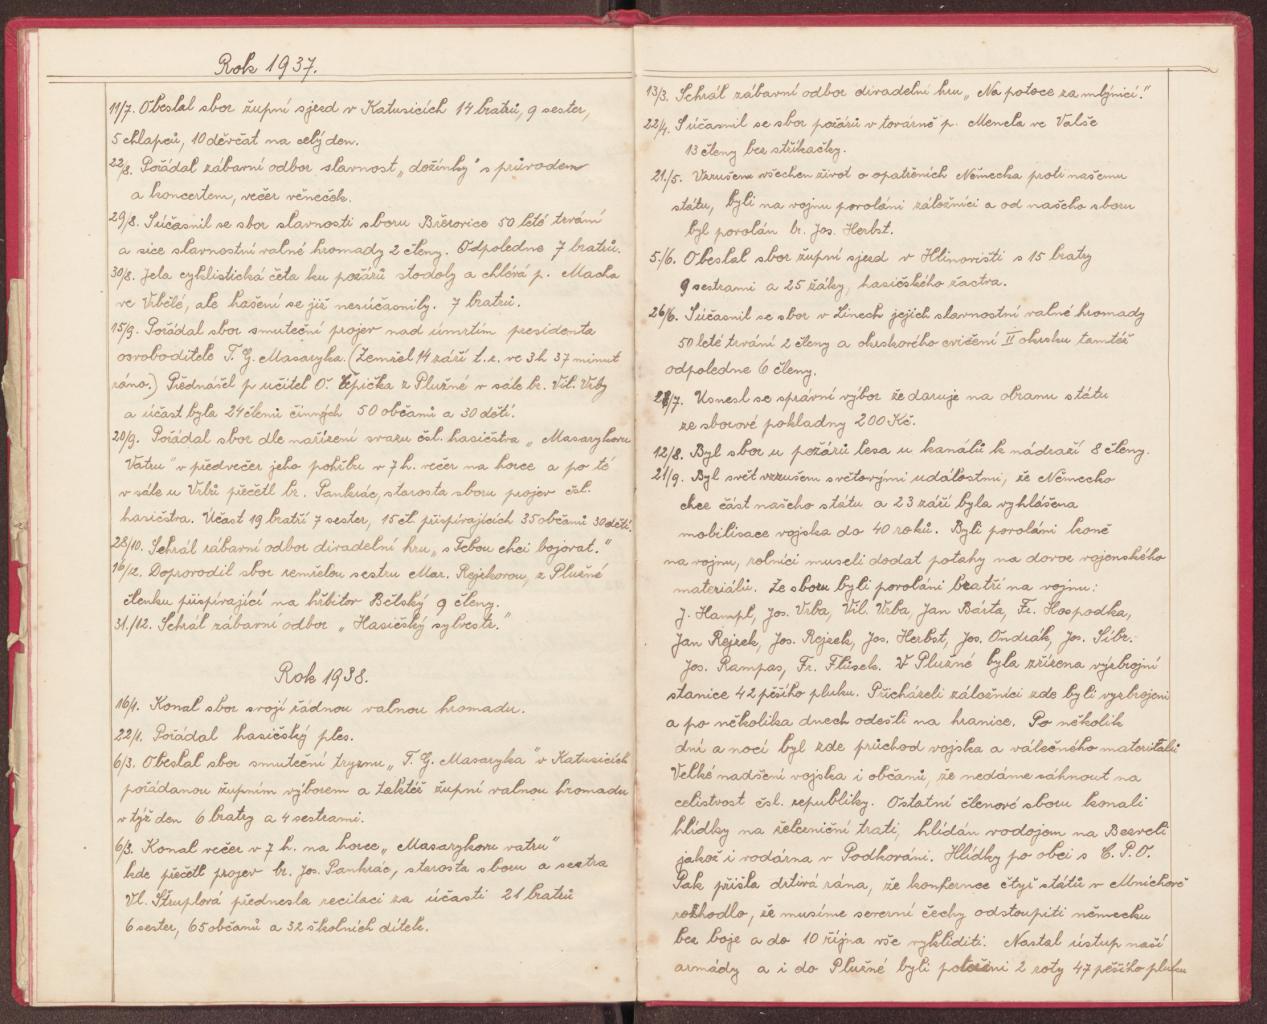 Rok 1937.
11/7. Obeslal sbor župní sjezd v Katusicích 14 bratrů, 9 sester,
5 chlapců, 10 děvčat na celý den.
22/8. Pořádal zábavní odbor slavnost „dožínky" s průvodem
a koncertem, večer věneček.
29/8. Súčasnil se sbor slavnosti sboru Březovice 50 leté trvání
a sice slavnostní valné hromady 2 členy. Odpoledne 7 bratrů.
30/8. Jela cyklistická četa ku požárů stodoly a chlévů p. Macha
ve Vrbělé, ale hašení se již nesúčasnily. 7 bratrů.
15/9. Pořádal sbor smuteční projev nad úmrtím presidenta
osvoboditele T. G. Masaryka. (Zemřel 14 září t.r. ve 3 h 37 minut
ráno.) Přednášel p. učitel O. Čepička z Plužné v sále br. Vil. Vrby
a účast byla 24 členů činných 50 občanů a 30 dětí.
20/9. Pořádal sbor dle nařízení svazu čsl. hasičstva „Masarykovu
Vatru" v předvečer jeho pohřbu v 7 h. večer na horce a po té
v sále u Vrbů přečetl br. Pankrác, starosta sboru projev čsl.
hasičstva. Účast 19 bratří 7 sester, 15 čl. přispívajících 35 občanů 30 dětí.
28/10. Sehrál zábavní odbor divadelní hru „s Tebou chci bojovat."
16/12. Doprovodil sbor zemřelou sestru Mar. Rejzkovou, z Plužné
členku přispívající na hřbitov Bělský 9 členy.
31./12. Sehrál zábavní odbor „Hasičský sylvestr."
Rok 1938.
16/1. Konal sbor svojí řádnou valnou hromadu.
22/1. Pořádal hasičský ples.
6/3. Obeslal sbor smuteční tryznu „T. G. Masaryka" v Katusicích
pořádanou župním výborem a žaktéž župní valnou hromadu
v týž den 6 bratry a 4 sestrami.
6/3. Konal večer v 7 h. na horce „Masarykovu vatru"
kde přečetl projev br. Jos. Pankrác, starosta sboru a sestra
Vl. Štruplová přednesla recitaci za účasti 21 bratrů
6 sester, 65 občanů a 32 školních dítek.
13/3. Sehrál zábavní odbor divadelní hru „Na potoce za mlýnicí."
22/4. Súčasnil se sbor požárů v továrně p. Mencla ve Valše
13 členy bez stříkačky.
21./5. Vzrušen všechen život o opatřeních Německa proti našemu
státu, byli na vojnu povoláni záložníci a od našeho sboru
byl povolán br. Jos. Herbst.
5./6. Obeslal sbor župní sjezd v Hlinovišti s 15 bratry
9 sestrami a 25 žáky, hasičského žactva.
26/6. Súčasnil se sbor v Línech jejich slavnostní valné hromady
50 leté trvání 2 členy a okrskového cvičení II okrsku tamtéž
odpoledne 6 členy.
28/7. Usnesl se správní výbor že daruje na obranu státu
ze sborové pokladny 200 Kč.
12/8. Byl sbor u požárů lesa u kanálů k nádraží 8 členy.
21/9. Byl svět vzrušem světovými událostmi, že Německo
chce část našeho státu a 23 září byla vyhlášena
mobilisace vojska do 40 roků. Byli povoláni koně
na vojnu, rolníci museli dodat potahy na dovoz vojenského
materiálu. Ze sboru byli povoláni bratří na vojnu:
J. Hampl, Jos. Vrba, Vil. Vrba, Jan Bárta, Fr. Hospodka,
Jan Rejzek, Jos. Rejzek, Jos. Herbst, Jos. Ondrák, Jos. Síbr.
Jos. Rampas, Fr. Flůsek. V Plužné byla zřízena výzbrojní
stanice 42 pěšího pluku. Přicházeli záložníci zde byli vyzbrojeni
a po několika dnech odešli na hranice. Po několik
dní a nocí byl zde průchod vojska a válečného materiálu
Velké nadšení vojska i občanů, že nedáme sáhnout na
celistvost čsl. republiky. Ostatní členové sboru konali
hlídky na železniční trati, hlídán vodojem na Bezveli
jakož i vodárna v Podkováni. Hlídky po obci s C. P. O.
Pak přišla drtivá rána, že konfernce čtyř států v Mnichově
rozhodlo, že musíme severní čechy odstoupiti německu
bez boje a do 10 října vše vykliditi. Nastal ústup naší
armády a i do Plužné byli položeni 2 roty 47 pěšího pluku